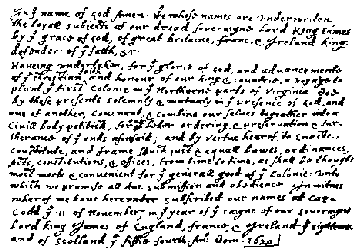 In yͤ name of god Amen. We whose names are underwriten,
the loyall subjects of our dread soveraigne Lord King James
by yͤ grace of god, of great Britaine, franc, & Ireland king,
defender of yͤ faith, &c
Haveing undertaken, for yͤ glorie of god, and advancemente
of yͤ christian faith and honour of our king & countrie, a voyage to
plant yͤ first colonie in yͤ Northerne parts of Virginia. Doe
by these presents solemnly & mutualy in yͤ presence of god, and
one of another, covenant, & combine our selves togeather into a
civill body politick, for our better ordering, & preservation & fur=
therance of yͤ ends aforesaid; and by vertue hearof to enacte,
constitute, and frame such just & equall lawes, ordinances,
Acts, constitutions, & offices, from time to time, as shall be thought
most meete & convenient for yͤ generall good of yͤ colonie: unto
which we promise all due submission and obedience. In witnes
wherof we have hereunder subscribed our names at Cap=
Codd yͤ 11 of November, in yͤ year of yͤ raigne of our soveraigne
Lord king James of England, france, & Ireland yͤ eighteenth
and of Scotland yͤ fiftie fourth. Ano: Dom. 1620